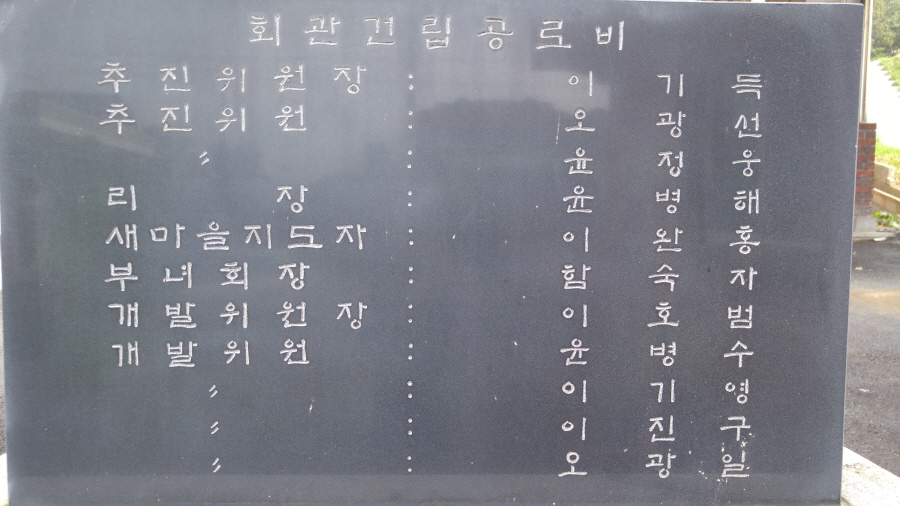 회관건립공로비
추진위원장 : 이기득
추진위원 : 오광선
〃 : 윤정웅
리장 : 윤병해
새마을지도자 : 이완홍
부녀회장 : 함숙자
개발위원장 : 이호범
개발위원 : 윤병수
〃 : 이기영
〃 : 이진구
〃 : 오광일